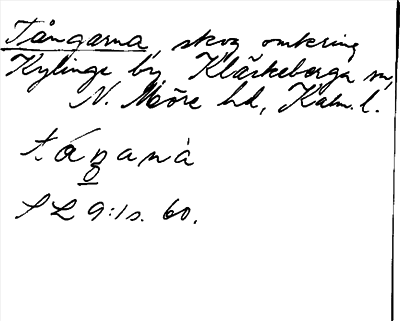 Tångarna, skog omkring
Kylinge by, Kläckeberga sn,
N. Möre hd, Kalm. l.
SL 9:1 s. 60.